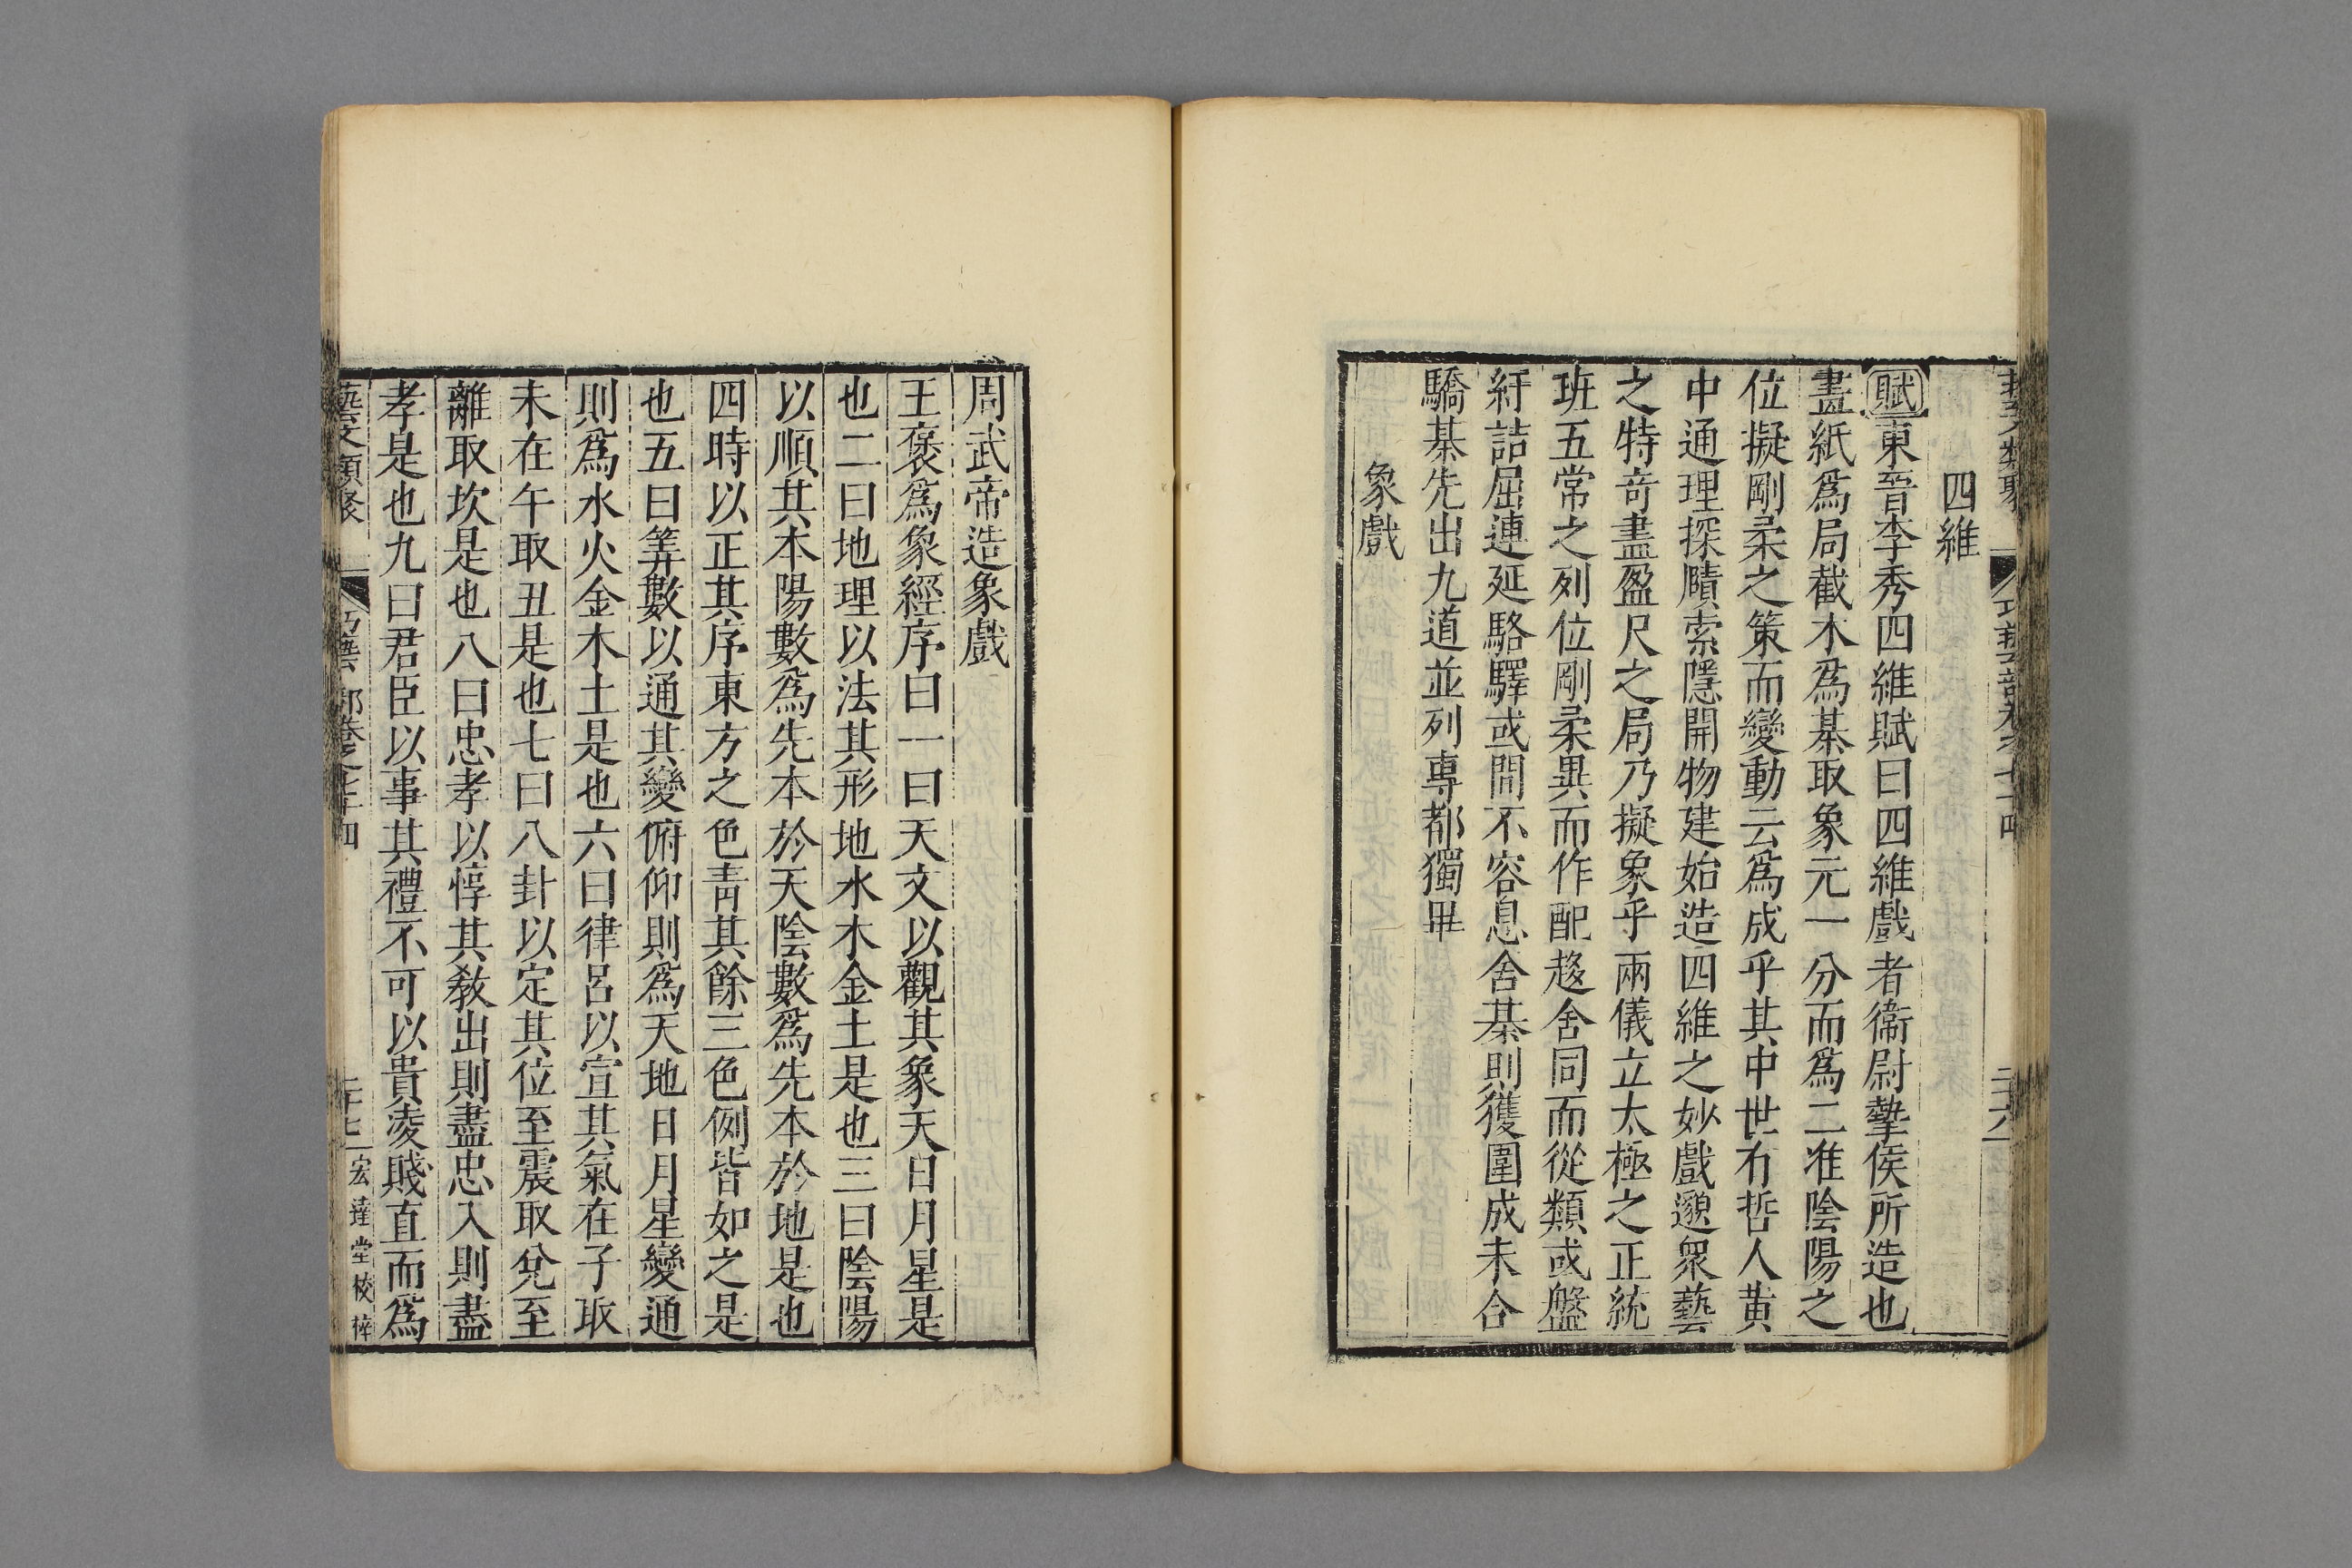 四維
賦東晉李秀四維賦曰四維戲者衞尉摯侯所造也
畫紙爲局截木爲棊取象元一分而爲二准陰陽之
位擬剛柔之策而變動云爲成乎其中世有哲人黄
中通理探賾索隱開物建始造四維之妙戲邈衆藝
之特奇盡盈尺之局乃擬象乎兩儀立太極之正統
班五常之列位剛柔異而作配趍舍同而從類或盤
紆詰屈連延駱驛或間不容息舍棊則獲圍成未合
驕棊先出九道並列專都獨畢
象戲
周武帝造象戲
王褒爲象經序曰一曰天文以觀其象天日月星是
也二曰地理以法其形地水木金土是也三曰陰陽
以順其本陽數爲先本於天陰數爲先本於地是也
四時以正其序東方之色靑其餘三色例皆如之是
也五曰筭數以通其變俯仰則爲天地日月星變通
則爲水火金木土是也六曰律呂以宣其氣在子取
未在午取丑是也七曰八卦以定其位至震取兌至
離取坎是也八曰忠孝以惇其教出則盡忠入則盡
孝是也九曰君臣以事其禮不可以貴凌賤直而爲
藝文類聚 巧藝部卷之七十四 二十七 宏達堂校梓